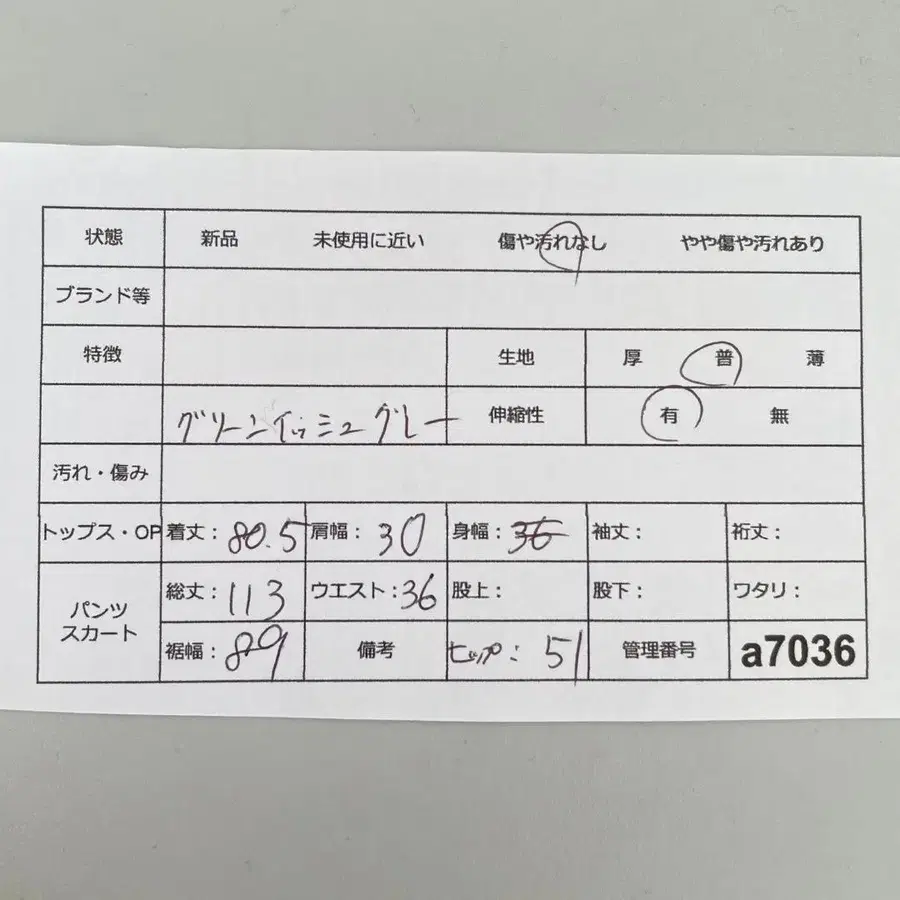 状態 新品 未使用に近い 傷や汚れなし やや傷や汚れあり
ブランド等
特徴 生地 厚 普 薄
グリーンイッシュグレー 伸縮性 有 無
汚れ・傷み
トップス・OP 着丈：80.5 肩幅：30 身幅：36 袖丈： 裄丈：
パンツ 総丈：113 ウエスト：36 股上： 股下： ワタリ：
スカート 裾幅：89 備考 ヒップ：51 管理番号 a7036